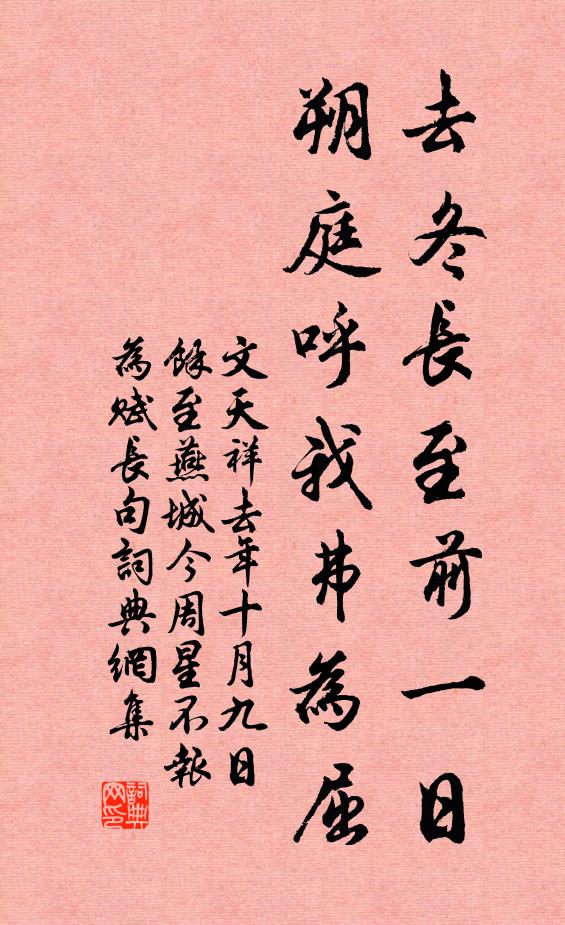 去冬長至前一日
朔庭呼我弗為屈
文天祥去年十月九日
餘至燕城今周星不報
為賦長句詞典網集
詞典网印